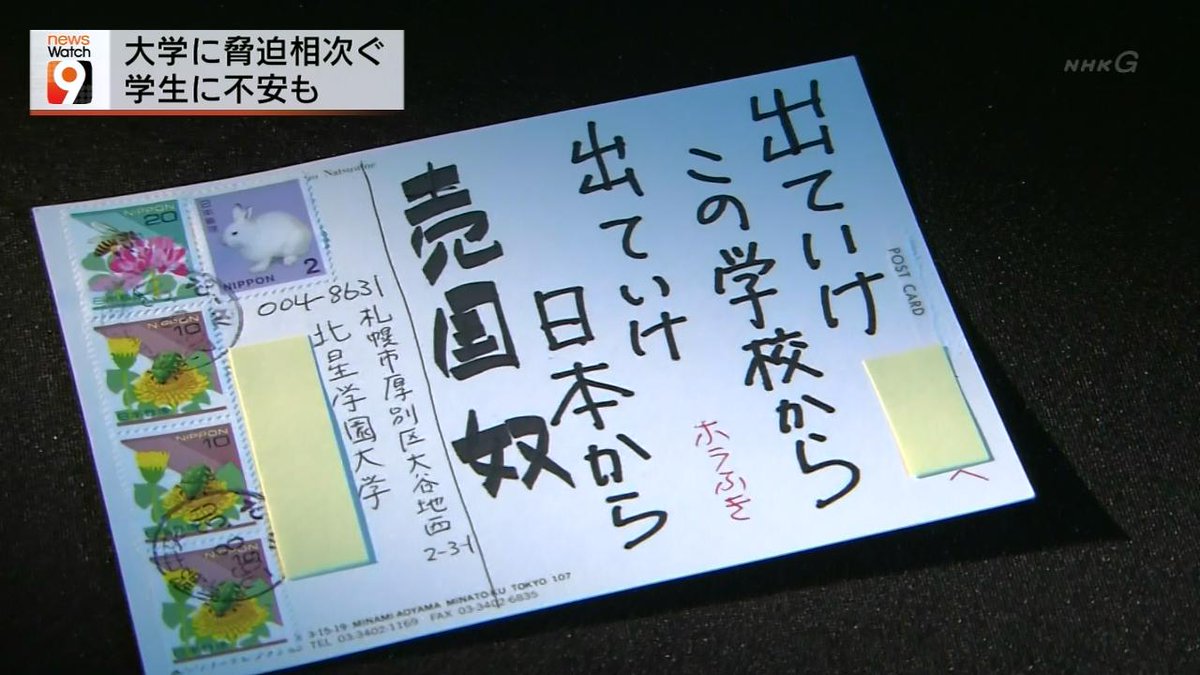 news
Watch
9
大学に脅迫相次ぐ
学生に不安も
NHK G
出ていけ
この学校から
出ていけ
日本から
売国奴
ホラふき
へ
POST CARD
004-8631
札幌市厚別区大谷地西
2-3-1
北星学園大学
NIPPON
20
日本郵便
日本郵便
NIPPON
2
NIPPON
10
日本郵便
NIPPON
10
日本郵便
NIPPON
10
日本郵便
3-15-19 MINAMI-AOYAMA MINATO-KU TOKYO 107
TEL 03-3402-1169 FAX 03-3402-6835